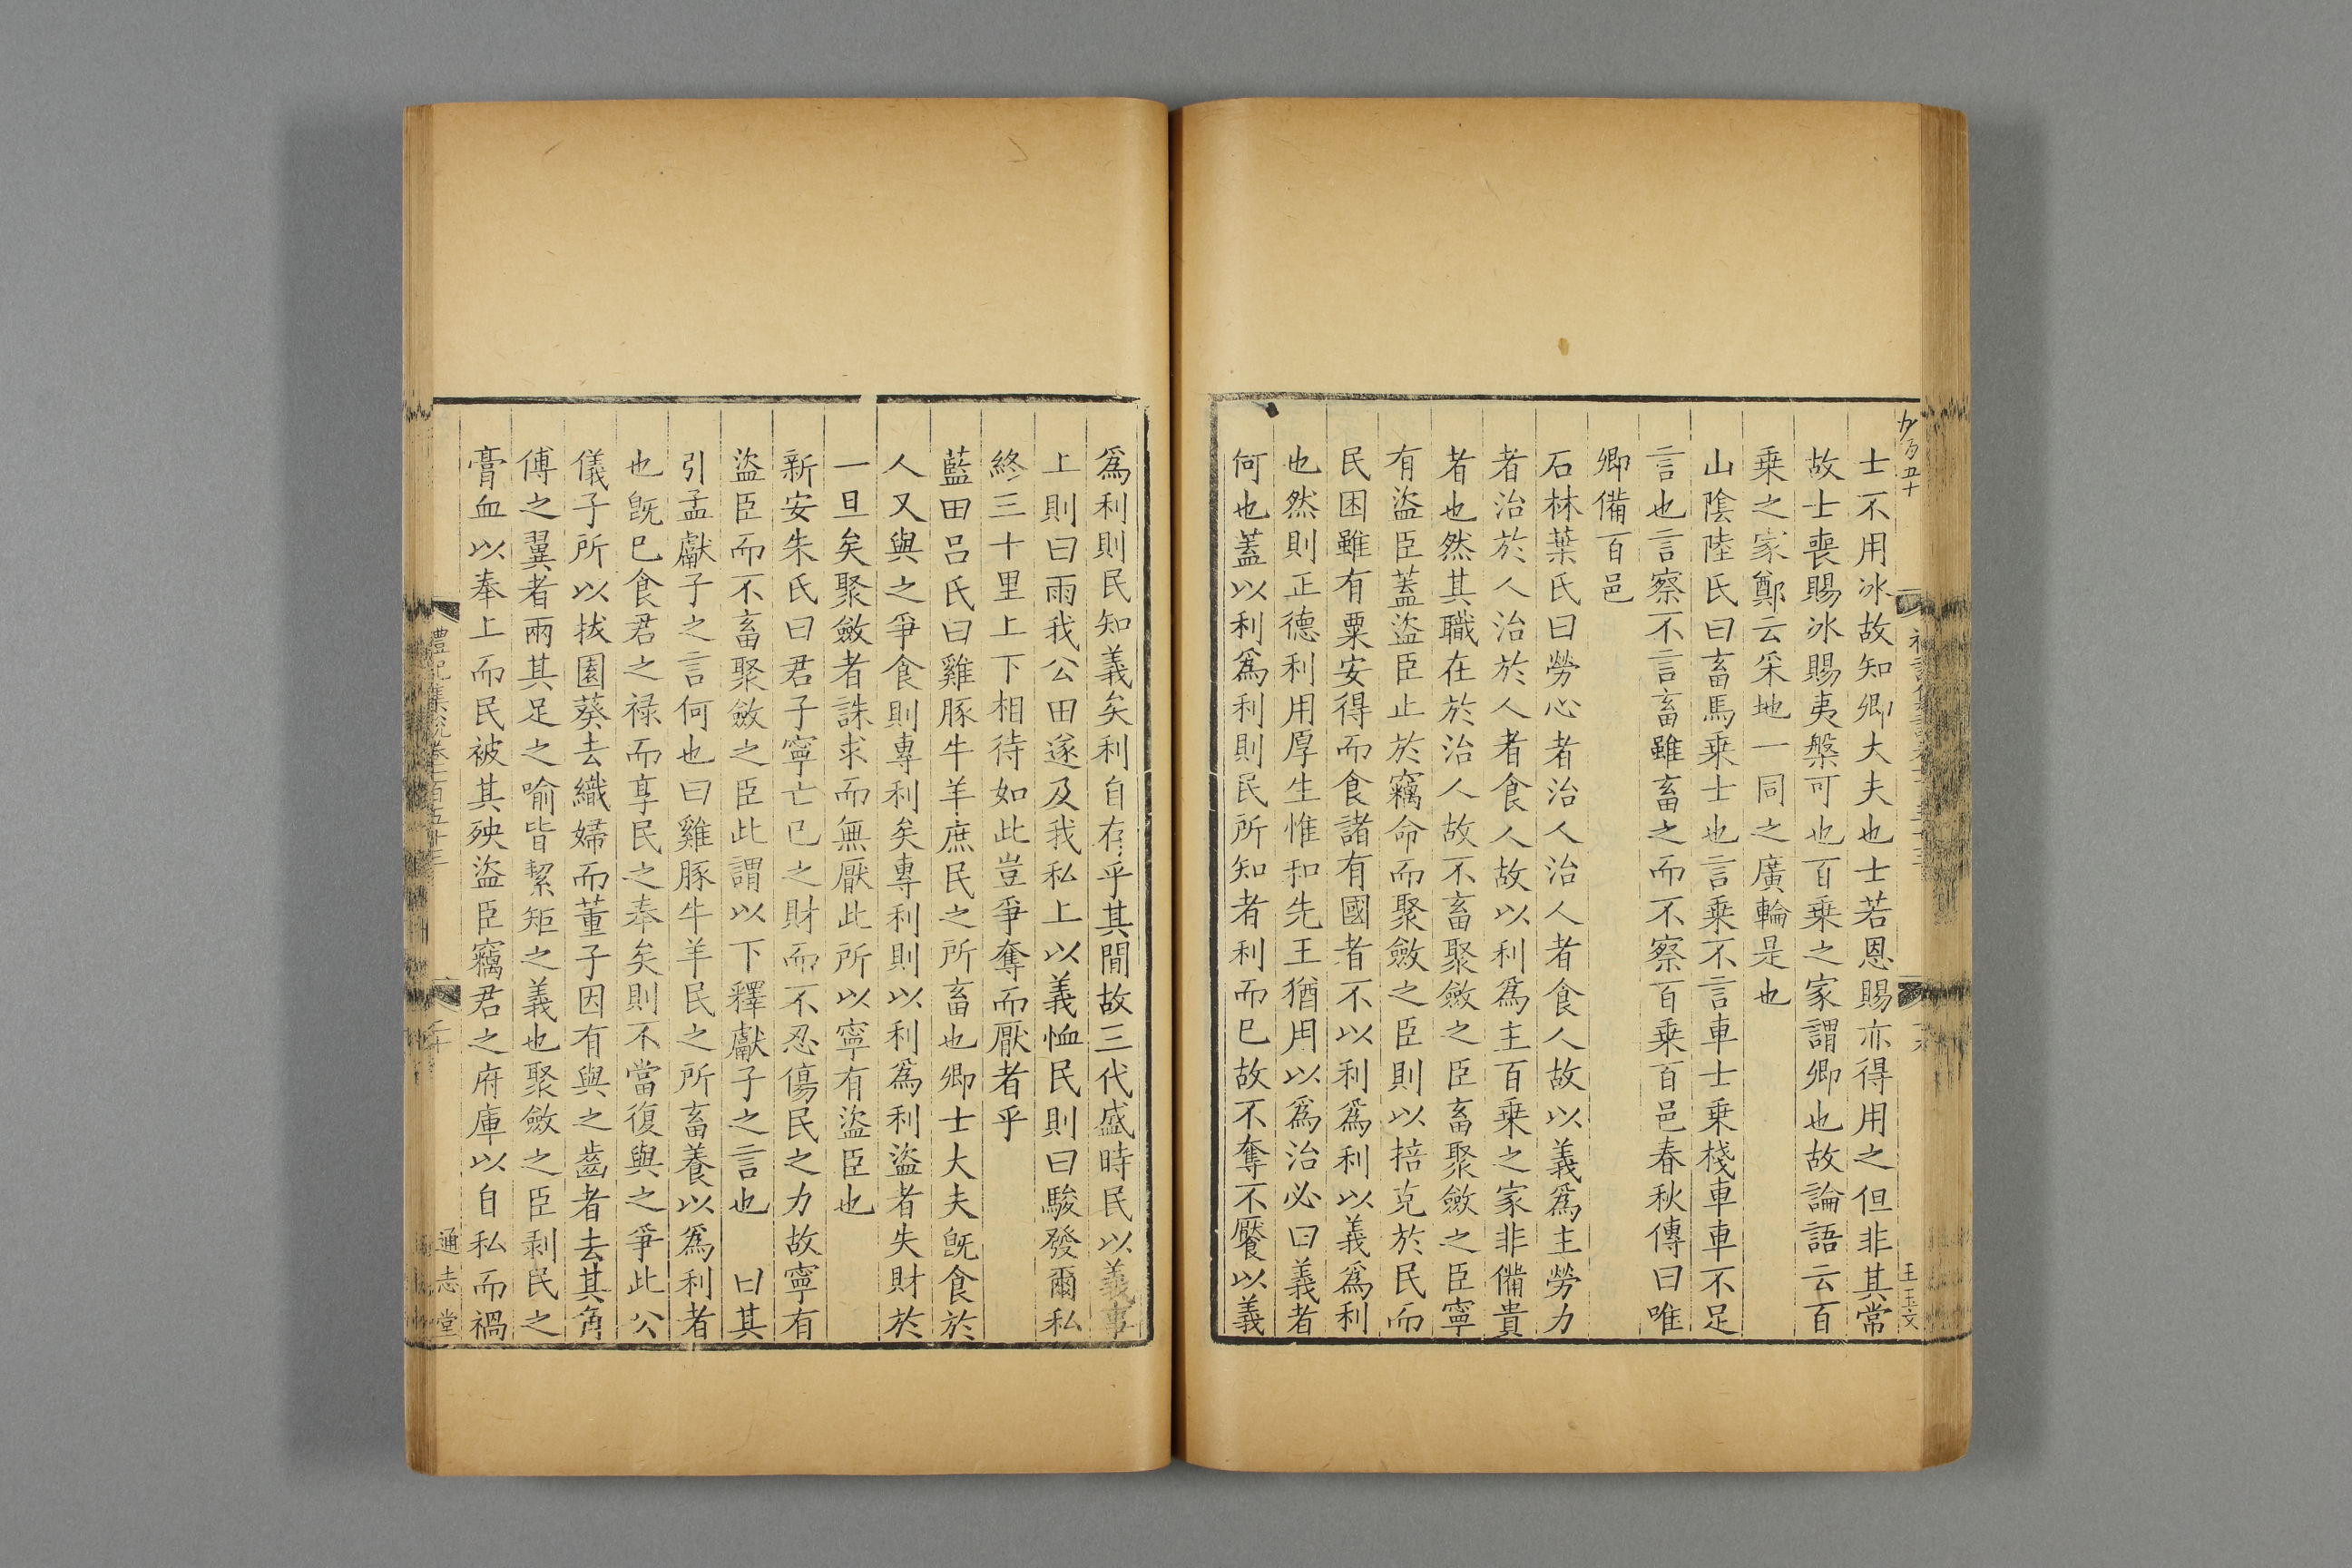 士不用冰故知卿大夫也士若恩賜亦得用之但非其常
故士喪賜冰賜夷槃可也百乗之家謂卿也故論語云百
乗之家鄭云采地一同之廣輪是也
山陰陸氏曰畜馬乗士也言乗不言車士乗棧車車不足
言也言察不言畜雖畜之而不察百乗百邑春秋傳曰唯
卿備百邑
石林葉氏曰勞心者治人治人者食人故以義爲主勞力
者治於人治於人者食人故以利爲主百乗之家非備貴
者也然其職在於治人故不畜聚斂之臣畜聚斂之臣寧
有盜臣蓋盜臣止於竊命而聚斂之臣則以掊克於民而
民困雖有粟安得而食諸有國者不以利爲利以義爲利
也然則正德利用厚生惟和先王猶用以爲治必曰義者
何也蓋以利爲利則民所知者利而已故不奪不饜以義
爲利則民知義矣利自存乎其間故三代盛時民以義事
上則曰雨我公田遂及我私上以義恤民則曰駿發爾私
終三十里上下相待如此豈爭奪而厭者乎
藍田呂氏曰雞豚牛羊庶民之所畜也卿士大夫旣食於
人又與之爭食則專利矣專利則以利爲利盜者失財於
一旦矣聚斂者誅求而無厭此所以寧有盜臣也
新安朱氏曰君子寧亡已之財而不忍傷民之力故寧有
盜臣而不畜聚斂之臣此謂以下釋獻子之言也　曰其
引孟獻子之言何也曰雞豚牛羊民之所畜養以爲利者
也旣已食君之禄而享民之奉矣則不當復與之爭此公
儀子所以拔園葵去織婦而董子因有與之齒者去其角
傅之翼者兩其足之喻皆絜矩之義也聚斂之臣剥民之
膏血以奉上而民被其殃盜臣竊君之府庫以自私而禍
禮記集說卷一百五十三
二十
通志堂
王玉文